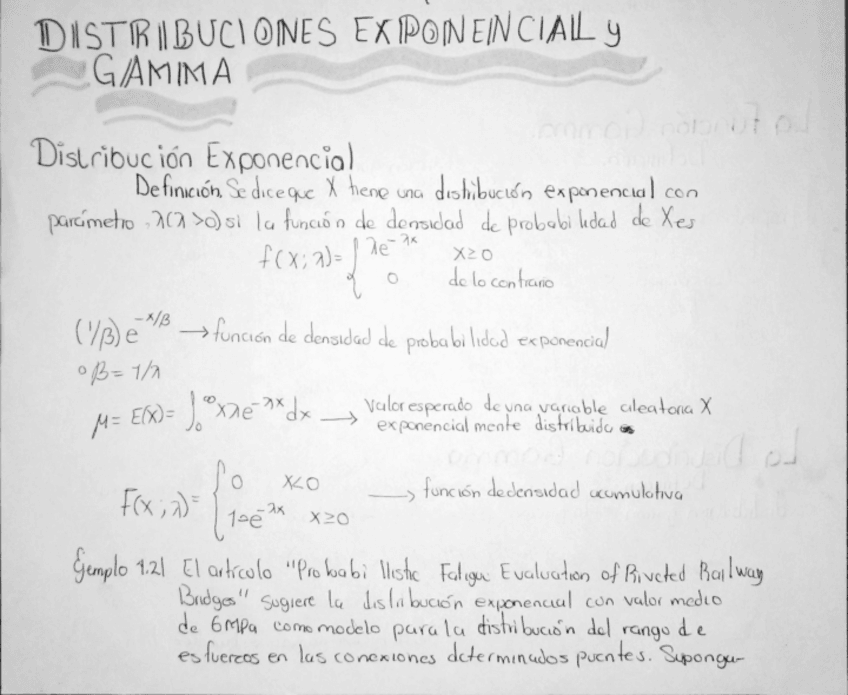 DISTRIBUCIONES EXPONENCIAL y
GAMMA
La Función Gamma.
Distribución Exponencial
Definición. Se dice que X tiene una distribución exponencial con
parámetro λ(λ>0) si la función de densidad de probabilidad de X es
f(x;λ)= { λe^-λx x≥0
0 de lo contrario
(1/β)e^-x/β → función de densidad de probabilidad exponencial
° β= 1/λ
μ= E(X)= ∫₀^∞ xλe^-λx dx → Valor esperado de una variable aleatoria X
exponencialmente distribuida
La Distribución Gamma
F(x;λ)= { 0 x<0
1-e^-λx x≥0 → función de densidad acumulativa
Ejemplo 4.21 El artículo "Probabilistic Fatigue Evaluation of Riveted Railway
Bridges" sugiere la distribución exponencial con valor medio
de 6MPa como modelo para la distribución del rango de
esfuerzos en las conexiones determinados puentes. Suponga-